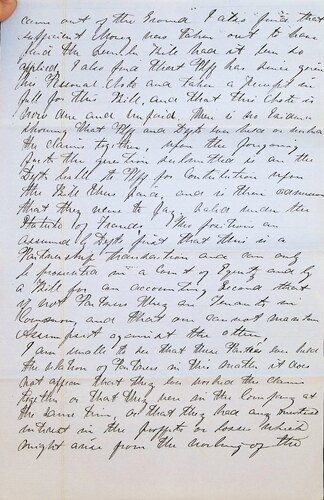 came out of the Ground" I also find that
sufficient money was taken out to have
paid the Lumber Bill had it been so
applied, I also find that Plff has since given
his Personal Note and taken a Receipt in
full for this Bill, and that this Note is
now due and unpaid, There is no Evidence
showing that Plff and Dfts ever held or worked
the claims together, upon the forgoing
facts the question submitted is are the
Dfts liable to Plff for Contribution upon
the Bill thus paid, and is their
that they were to pay valid under the
Statute of Frauds, Two positions are
assumed by Dfts first that this is a
Partnership transaction and can only
be prosecuted in a Court of Equity and by
a Bill for an accounting, Second that
if not Partners They are Tenants in
Common and that one cannot maintain
Assumpsit against the other,
I am unable to see that these Parties ever held
the relation of Partners in this matter it does
not appear that they ever worked the claims
together or that they were in the Company at
the same time, or that they had any mutual
interest in the profits or losses which
might arise from the working of the